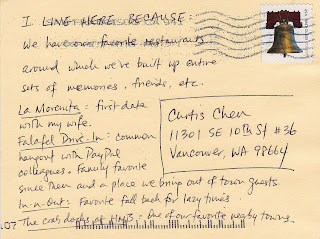 I LIVE HERE BECAUSE:
We have our favorite restaurants
around which we've built up entire
sets of memories, friends, etc.
La Morenita: first date
with my wife.
Falafel Drive-In: common
hangout with PayPal
colleagues. Family favorite
since then and a place we bring out of town guests
In-n-Out: Favorite fall back for lazy times.
The crab docks at HMB - one of our favorite nearby towns.
Curtis Chen
11301 SE 10th St #36
Vancouver, WA 98664